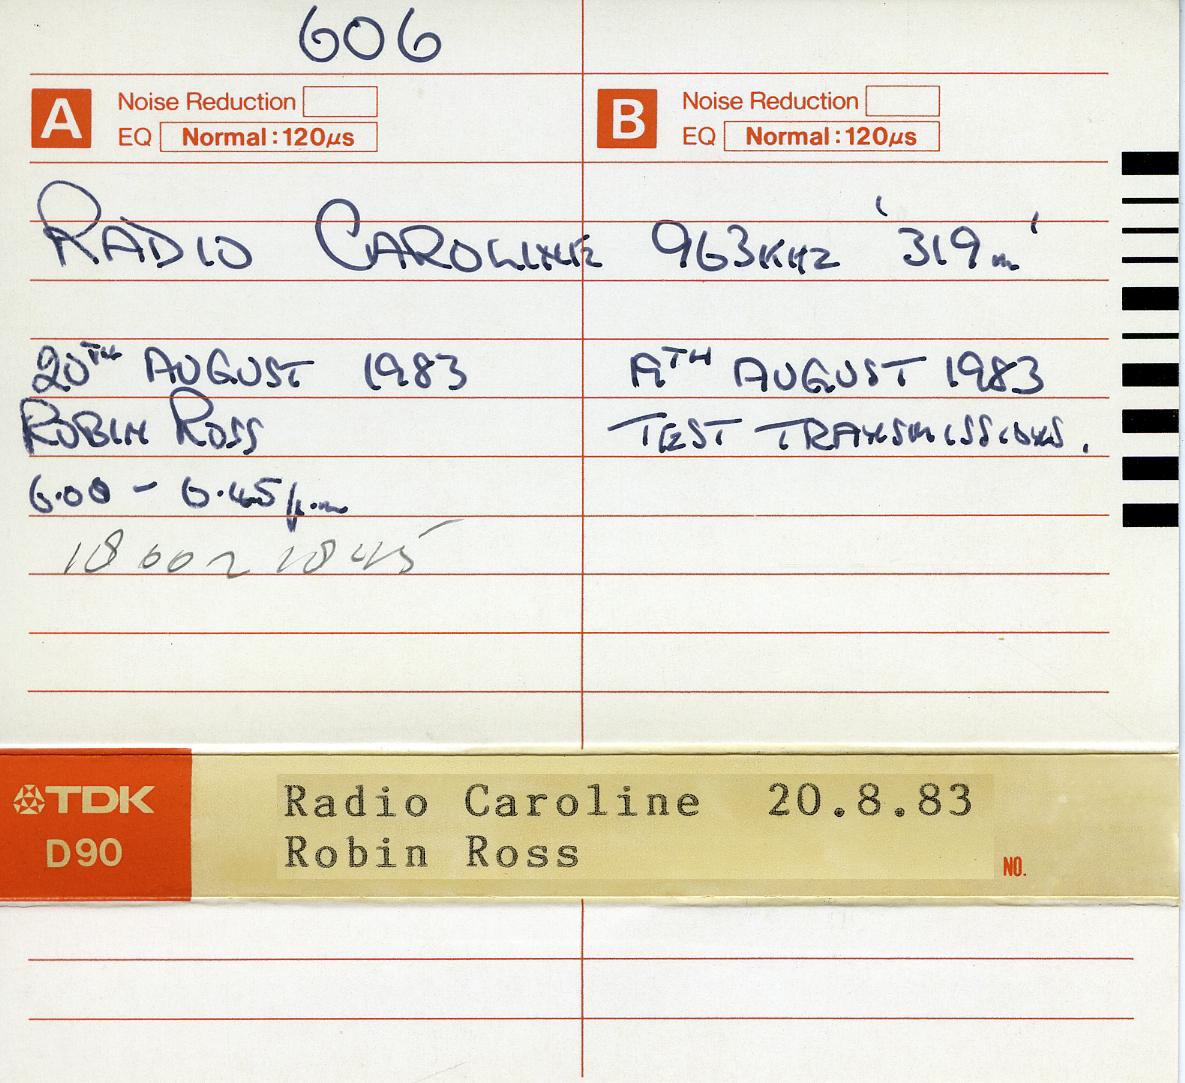 606
A Noise Reduction
EQ Normal:120μs
B Noise Reduction
EQ Normal:120μs
RADIO CAROLINE 963KHZ '319m'
20TH AUGUST 1983
ROBIN ROSS
6.00 - 6.45 p.m
1800 ~ 1845
19TH AUGUST 1983
TEST TRANSMISSIONS.
TDK
D90
Radio Caroline 20.8.83
Robin Ross
NO.